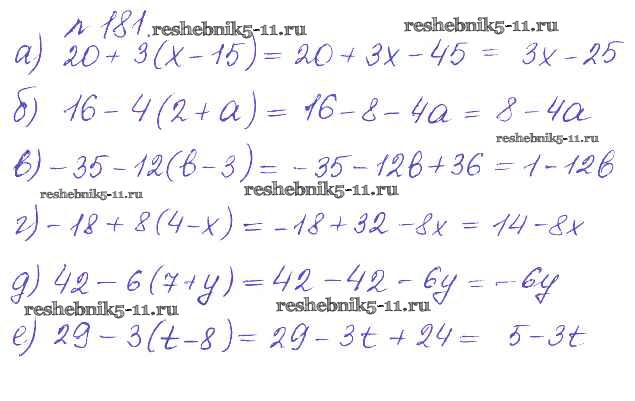 № 181. reshebnik5-11.ru reshebnik5-11.ru
а) 20 + 3(x - 15) = 20 + 3x - 45 = 3x - 25
б) 16 - 4(2 + a) = 16 - 8 - 4a = 8 - 4a
reshebnik5-11.ru
в) - 35 - 12(b - 3) = - 35 - 12b + 36 = 1 - 12b
reshebnik5-11.ru reshebnik5-11.ru
г) - 18 + 8(4 - x) = - 18 + 32 - 8x = 14 - 8x
д) 42 - 6(7 + y) = 42 - 42 - 6y = - 6y
reshebnik5-11.ru reshebnik5-11.ru
е) 29 - 3(t - 8) = 29 - 3t + 24 = 5 - 3t